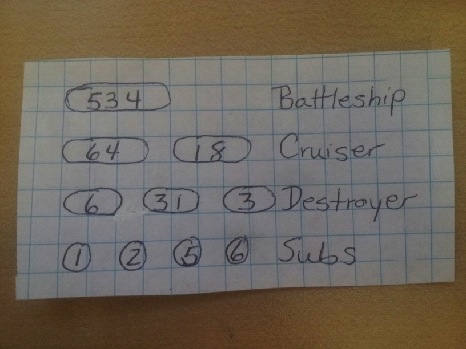 534 Battleship
64 18 Cruiser
6 31 3 Destroyer
1 2 5 6 Subs